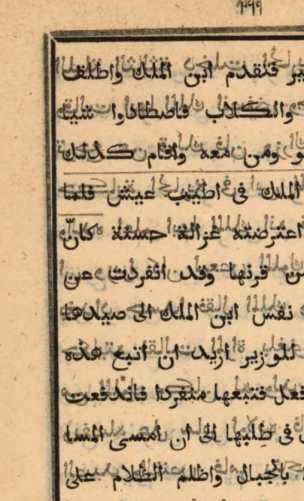 فتقدم ابن الملك واطلق
والكلاب فاصطادوا شيا
ومن معه واقام كذلك
الملك فى اطيب عيش فلما
اعترضته غزالة حسنة كانّ
قرنها وقد انفردت عن
نفس ابن الملك الى صيدها
للوزير اريد ان اتبع هذه
فتبعها منفردا فاندفعت
فى طلبها الى ان امسى المسا
بالجبال واظلم الظلام على